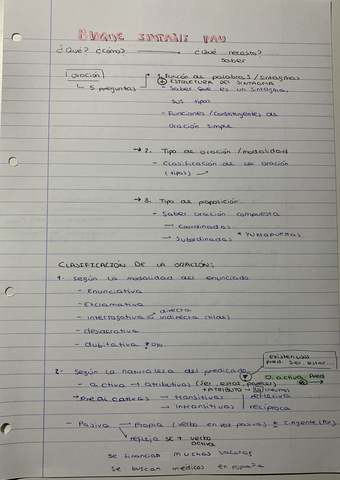 BLOQUE SINTAXIS PAU
¿Qué? ¿cómo? → ¿Qué necesito?
saber
oración
→ 5 preguntas
1. Función de palabras / sintagmas
⊕ ESTRUCTURA DEL SINTAGMA
- Saber qué es un sintagma,
sus tipos
- Funciones / constituyentes de
oración simple
→ 2. Tipo de oración / modalidad
- Clasificación de la oración
(tipos)
→ 3. Tipo de proposición
- Saber oración compuesta
→ Coordinadas
→ Subordinadas * Yuxtapuestas
CLASIFICACIÓN DE LA ORACIÓN:
1. Según la modalidad del enunciado
- Enunciativa
- Exclamativa
- Interrogativa directa
indirecta (tildes)
- desiderativa
- dubitativa
2- Según la naturaleza del predicado
pred. ser, estar...
O. activa Pred
- activa → Atributivas (ser, estar, parecer)
+ ATRIBUTO →
→ Predicativas → transitivas reflexiva
→ intransitivas recíproca
- Pasiva → Propia (verbo en voz pasiva) + C.Agente (por)
refleja SE + verbo
activa
se financian muchas vacunas
se buscan médicos en españa